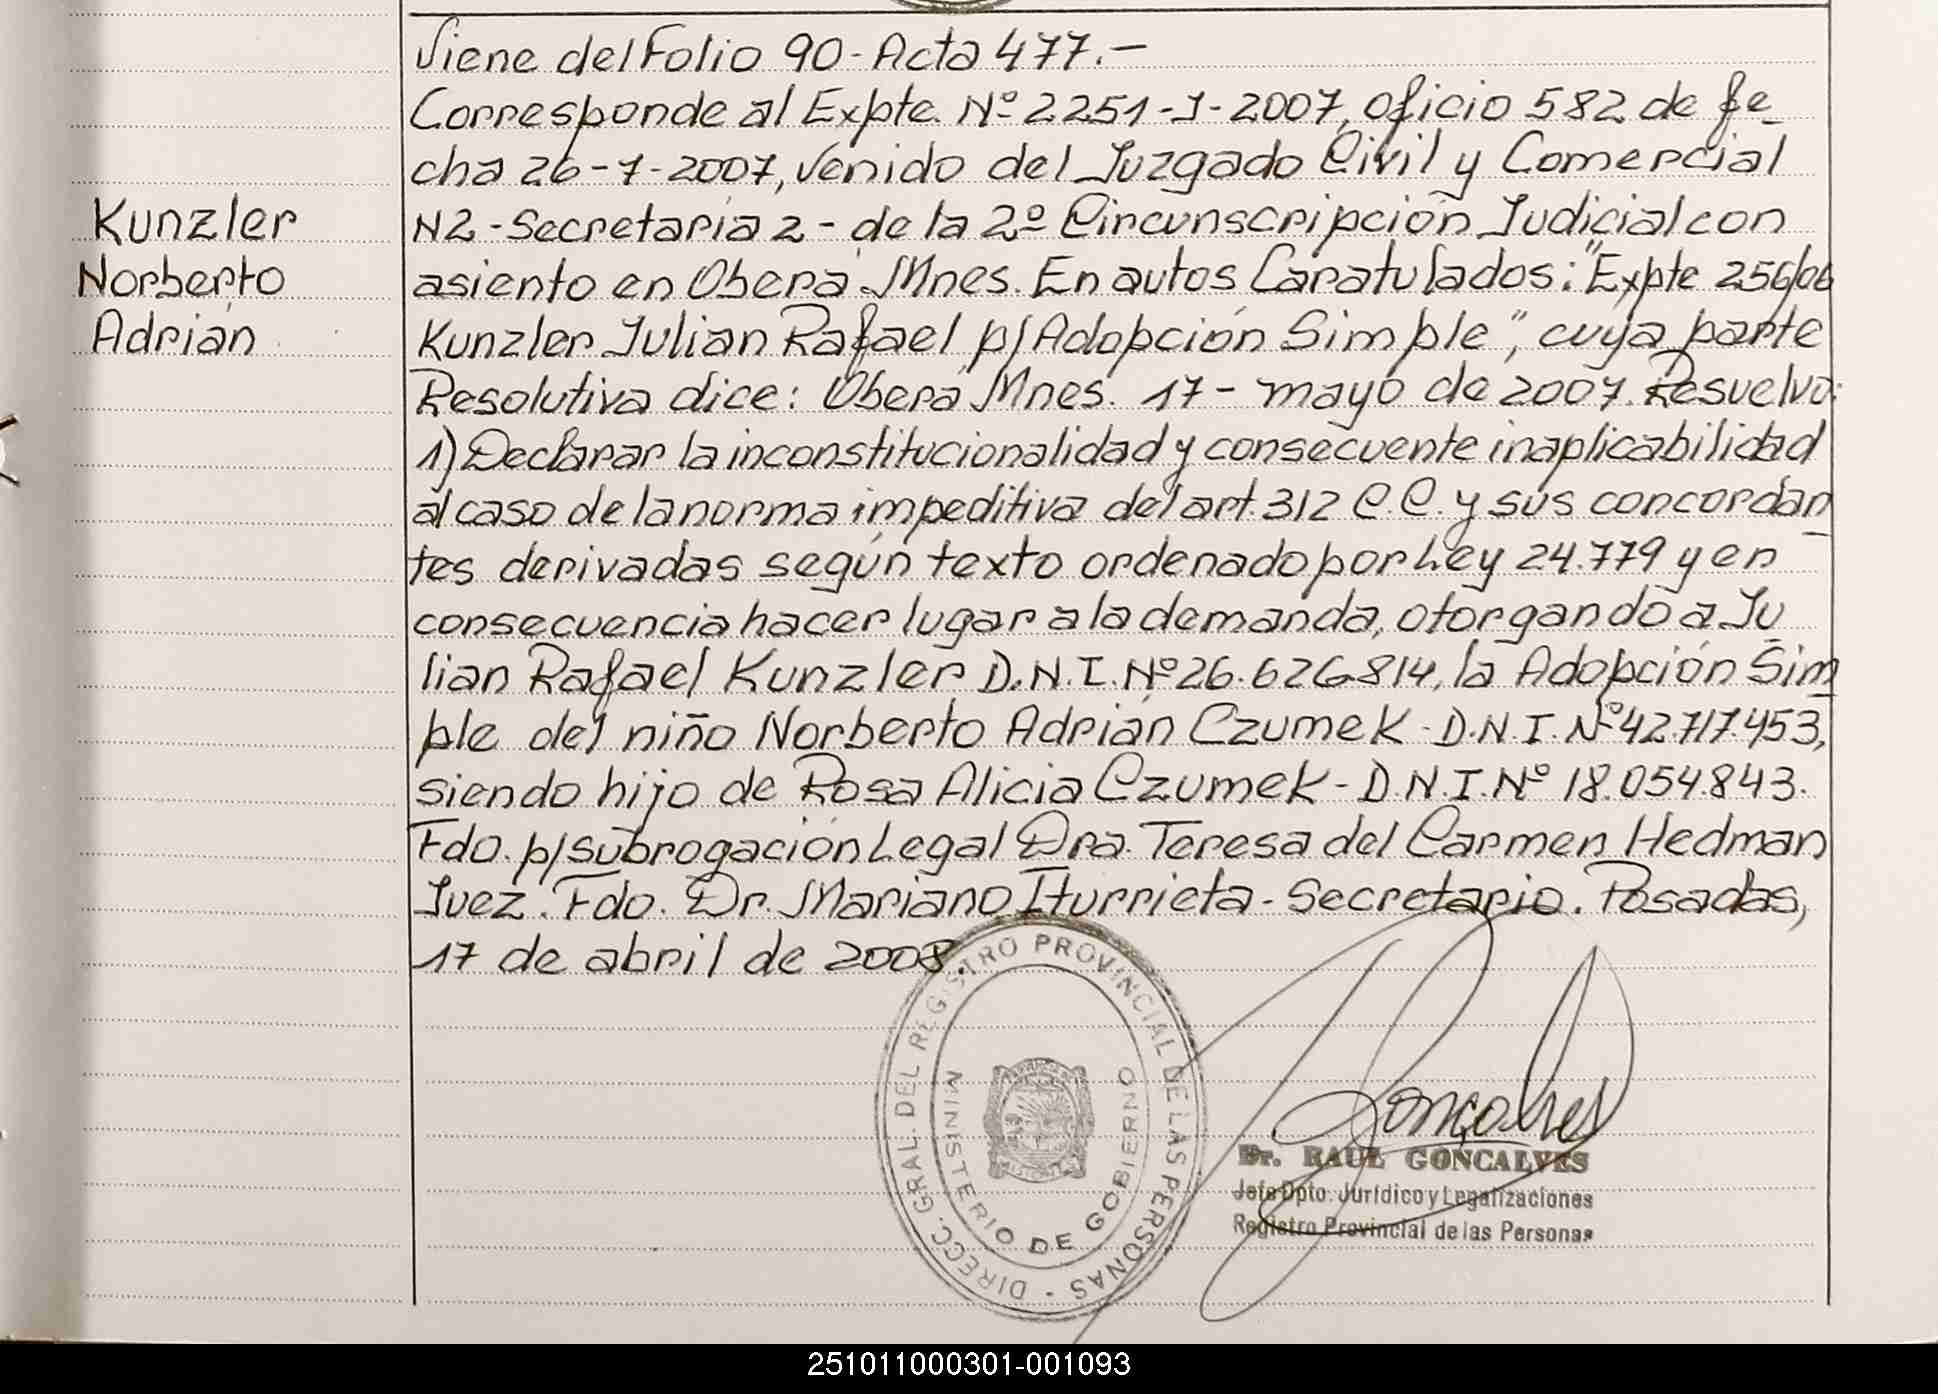 Viene del Folio 90 - Acta 477. -
Corresponde al Expte. Nº 2251-J-2007, oficio 582 de fe_
cha 26-7-2007, venido del Juzgado Civil y Comercial
N2 - Secretaría 2 - de la 2º Circunscripción Judicial con
asiento en Oberá Mnes. En autos Caratulados: "Expte 256/06
Kunzler Julian Rafael p/ Adopción Simple", cuya parte
Resolutiva dice: Oberá Mnes. 17 - mayo de 2007. Resuelvo:
1) Declarar la inconstitucionalidad y consecuente inaplicabilidad
al caso de la norma impeditiva del art. 312 C.C. y sus concordan_
tes derivadas según texto ordenado por Ley 24.779 y en
consecuencia hacer lugar a la demanda, otorgando a Ju_
lian Rafael Kunzler D.N.I. Nº 26.626.814, la Adopción Sim_
ple del niño Norberto Adrián Czumek - D.N.I. Nº 42.717.453,
siendo hijo de Rosa Alicia Czumek - D.N.I. Nº 18.054.843.
Fdo. p/ subrogación Legal Dra. Teresa del Carmen Hedman
Juez. Fdo. Dr. Mariano Iturrieta - Secretario. Posadas,
17 de abril de 2008.
Kunzler
Norberto
Adrián
DIRECC. GRAL. DEL REGISTRO PROVINCIAL DE LAS PERSONAS -
MINISTERIO DE GOBIERNO
Gonçalves
Dr. RAUL GONCALVES
Jefe Dpto. Jurídico y Legalizaciones
Registro Provincial de las Personas
251011000301-001093